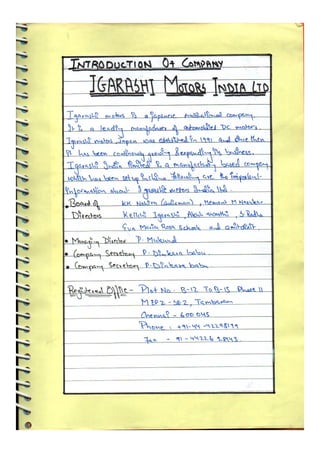 INTRODUCTION Of COMPANY
IGARASHI MOTORS INDIA LTD
Igarashi motors is a Japanese multinational company.
It is a leading manufacturer of automobiles DC motors.
Igarashi motors, Japan was established in 1991 and since then
it has been continously growing & expanding its business.
Igarashi India limited is a manufacturing based company
which has been setup in Following are the important
Information about Igarashi motors India ltd
• Board of KK Nohria (Chairman), Hemant M Nerurkar
Directors Keiichi Igarashi, Akash S Radha
Eva Maria Rosa Schork and
• Managing Director P. Mukund
• Company Secretary P. Dinkara babu
• Company Secretary P. Dinkara babu
Registered Office - Plot No. B-12 To B-15 Phase II
MEPZ-SEZ, Tambaram
Chennai - 600045
Phone : +91-44-42298199
Fax - 91-44226 28143